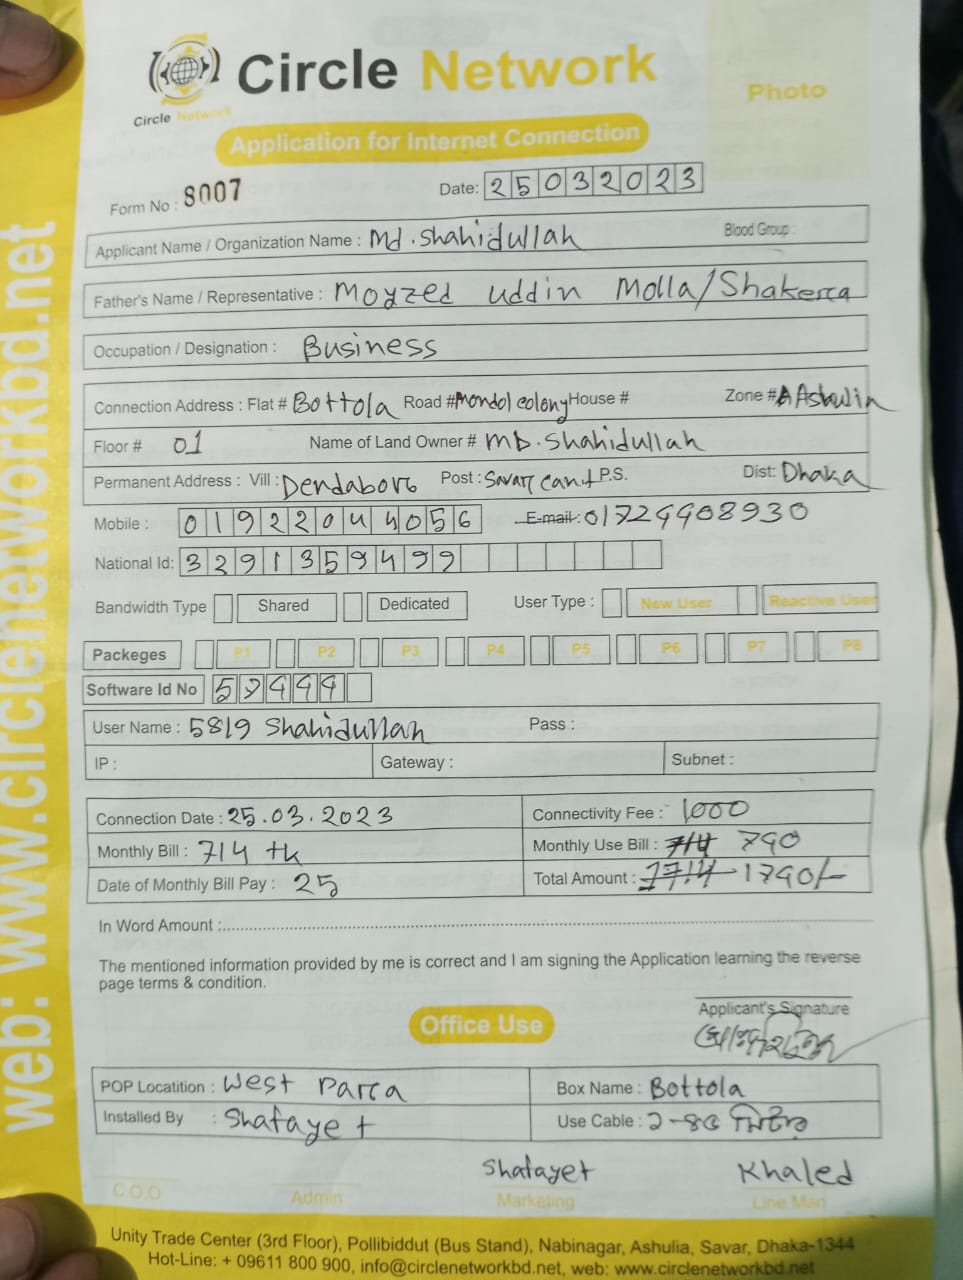 web: www.circlenetworkbd.net
Circle Network
Circle Network
Photo
Application for Internet Connection
Form No : 8007 Date: 25032023
Applicant Name / Organization Name : Md. Shahidullah Blood Group :
Father's Name / Representative : Moyzed uddin Molla/Shakera
Occupation / Designation : Business
Connection Address : Flat # Bottola Road # Mondol colony House # Zone #
Floor # 01 Name of Land Owner # MD. Shahidullah
Permanent Address : Vill : Dendabor Post : Savar cant P.S. Dist: Dhaka
Mobile : 01922044056 E-mail: 01729908930
National Id: 3291359499
Bandwidth Type Shared Dedicated User Type : New User Reactive User
Packeges P1 P2 P3 P4 P5 P6 P7 P8
Software Id No
User Name : 5819 Shahidullah Pass :
IP : Gateway : Subnet :
Connection Date : 25.03.2023 Connectivity Fee : 1000
Monthly Bill : 714 tk Monthly Use Bill : 714 790
Date of Monthly Bill Pay : 25 Total Amount : 1714 1790/-
In Word Amount :
The mentioned information provided by me is correct and I am signing the Application learning the reverse
page terms & condition.
Applicant's Signature
Office Use
POP Locatition : West Para Box Name : Bottola
Installed By : Shafayet Use Cable : মিটার
Shafayet Khaled
C.O.O Admin Marketing Line Man
Unity Trade Center (3rd Floor), Pollibiddut (Bus Stand), Nabinagar, Ashulia, Savar, Dhaka-1344
Hot-Line: + 09611 800 900, info@circlenetworkbd.net, web: www.circlenetworkbd.net